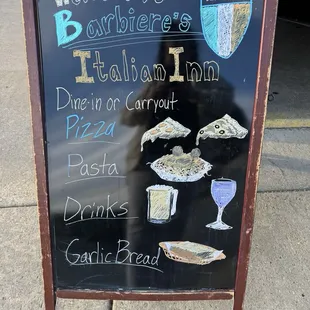 Barbiere's
Italian Inn
Dine-in or Carryout
Pizza
Pasta
Drinks
Garlic Bread